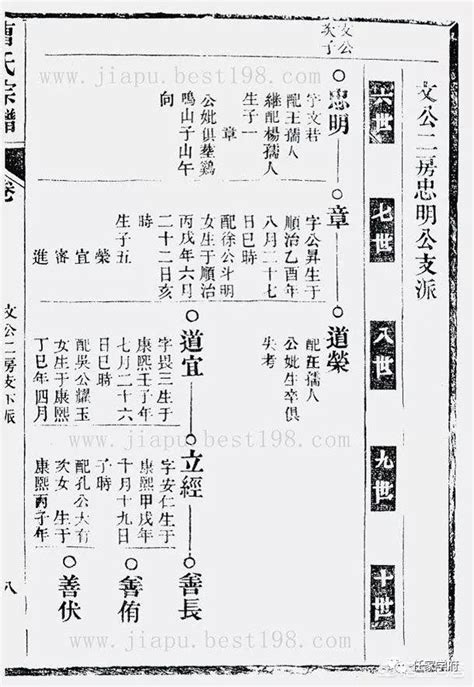 文公二房忠明公支派
六世
七世
八世
九世
十世
文公
次子
忠明
字文若
配王孺人
継配楊孺人
生子一
章
公妣俱塟鷄
鳴山子山午
向
章
字公昇生于
順治乙酉年
八月二十七
日巳時
配徐公斗明
女生于順治
丙戌年六月
二十二日亥
時
生子五
榮
宜
審
進
道榮
配汪孺人
公妣生卒俱
失考
道宜
字畏三生于
康熙壬子年
七月二十六
日巳時
配吳公耀玉
女生于康熙
丁巳年四月
立經
字安仁生于
康熙甲戌年
十月十九日
子時
配孔公大有
次女 生于
康熙丙子年
善長
善侑
善伏
氏宗譜
卷
文公二房支下派
八
www.jiapu.best198.com
www.jiapu.best198.com
www.jiapu.best198.com